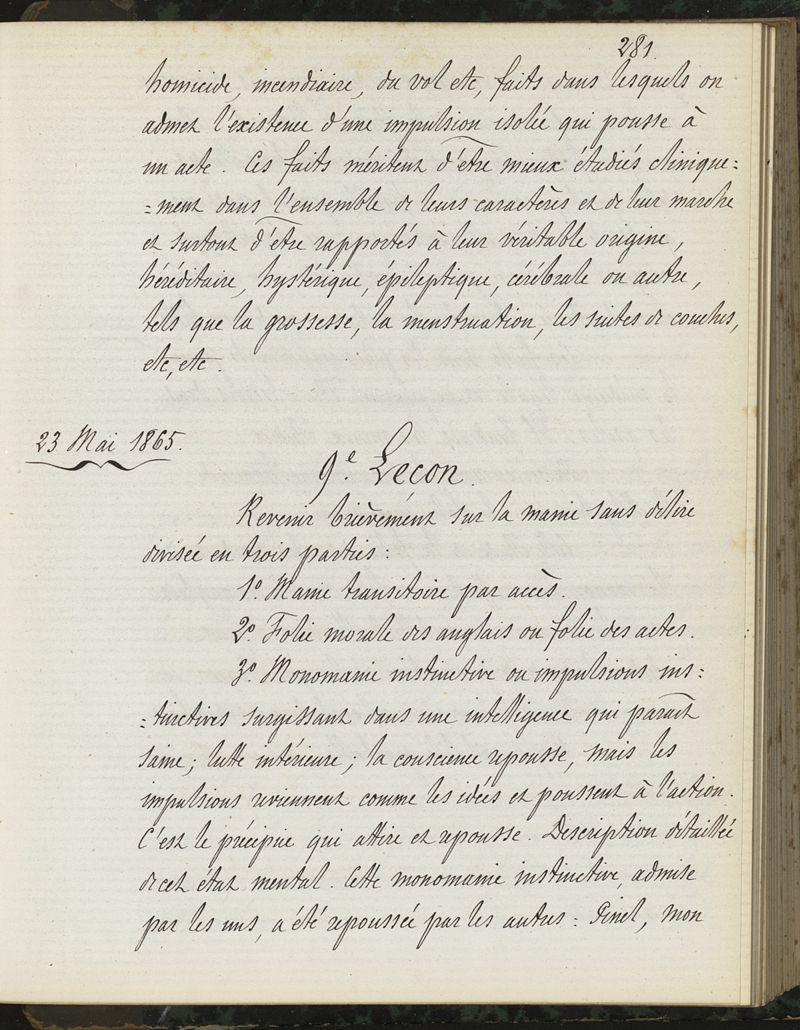 281.
homicide, incendiaire, du vol etc, faits dans lesquels on
admet l'existence d'une impulsion isolée qui pousse à
un acte. Ces faits méritent d'être mieux étudiés clinique=
=ment dans l'ensemble de leurs caractères et de leur marche
et surtout d'être rapportés à leur véritable origine,
héréditaire, hystérique, épileptique, cérébrale ou autre,
tels que la grossesse, la menstruation, les suites de couches,
etc, etc.
23 Mai 1865.
9e. Lecon.
Revenir brièvement sur la manie sans délire
divisée en trois parties:
1o. Manie transitoire par accès.
2o. Folie morale des anglais ou folie des actes.
3o. Monomanie instinctive ou impulsions ins=
=tinctives surgissant dans une intelligence qui paraît
saine; lutte intérieure; la conscience repousse, mais les
impulsions reviennent comme les idées et poussent à l'action.
C'est le précipice qui attire et repousse. Description détaillée
de cet état mental. Cette monomanie instinctive, admise
par les uns, a été repoussée par les autres: Pinel, mon